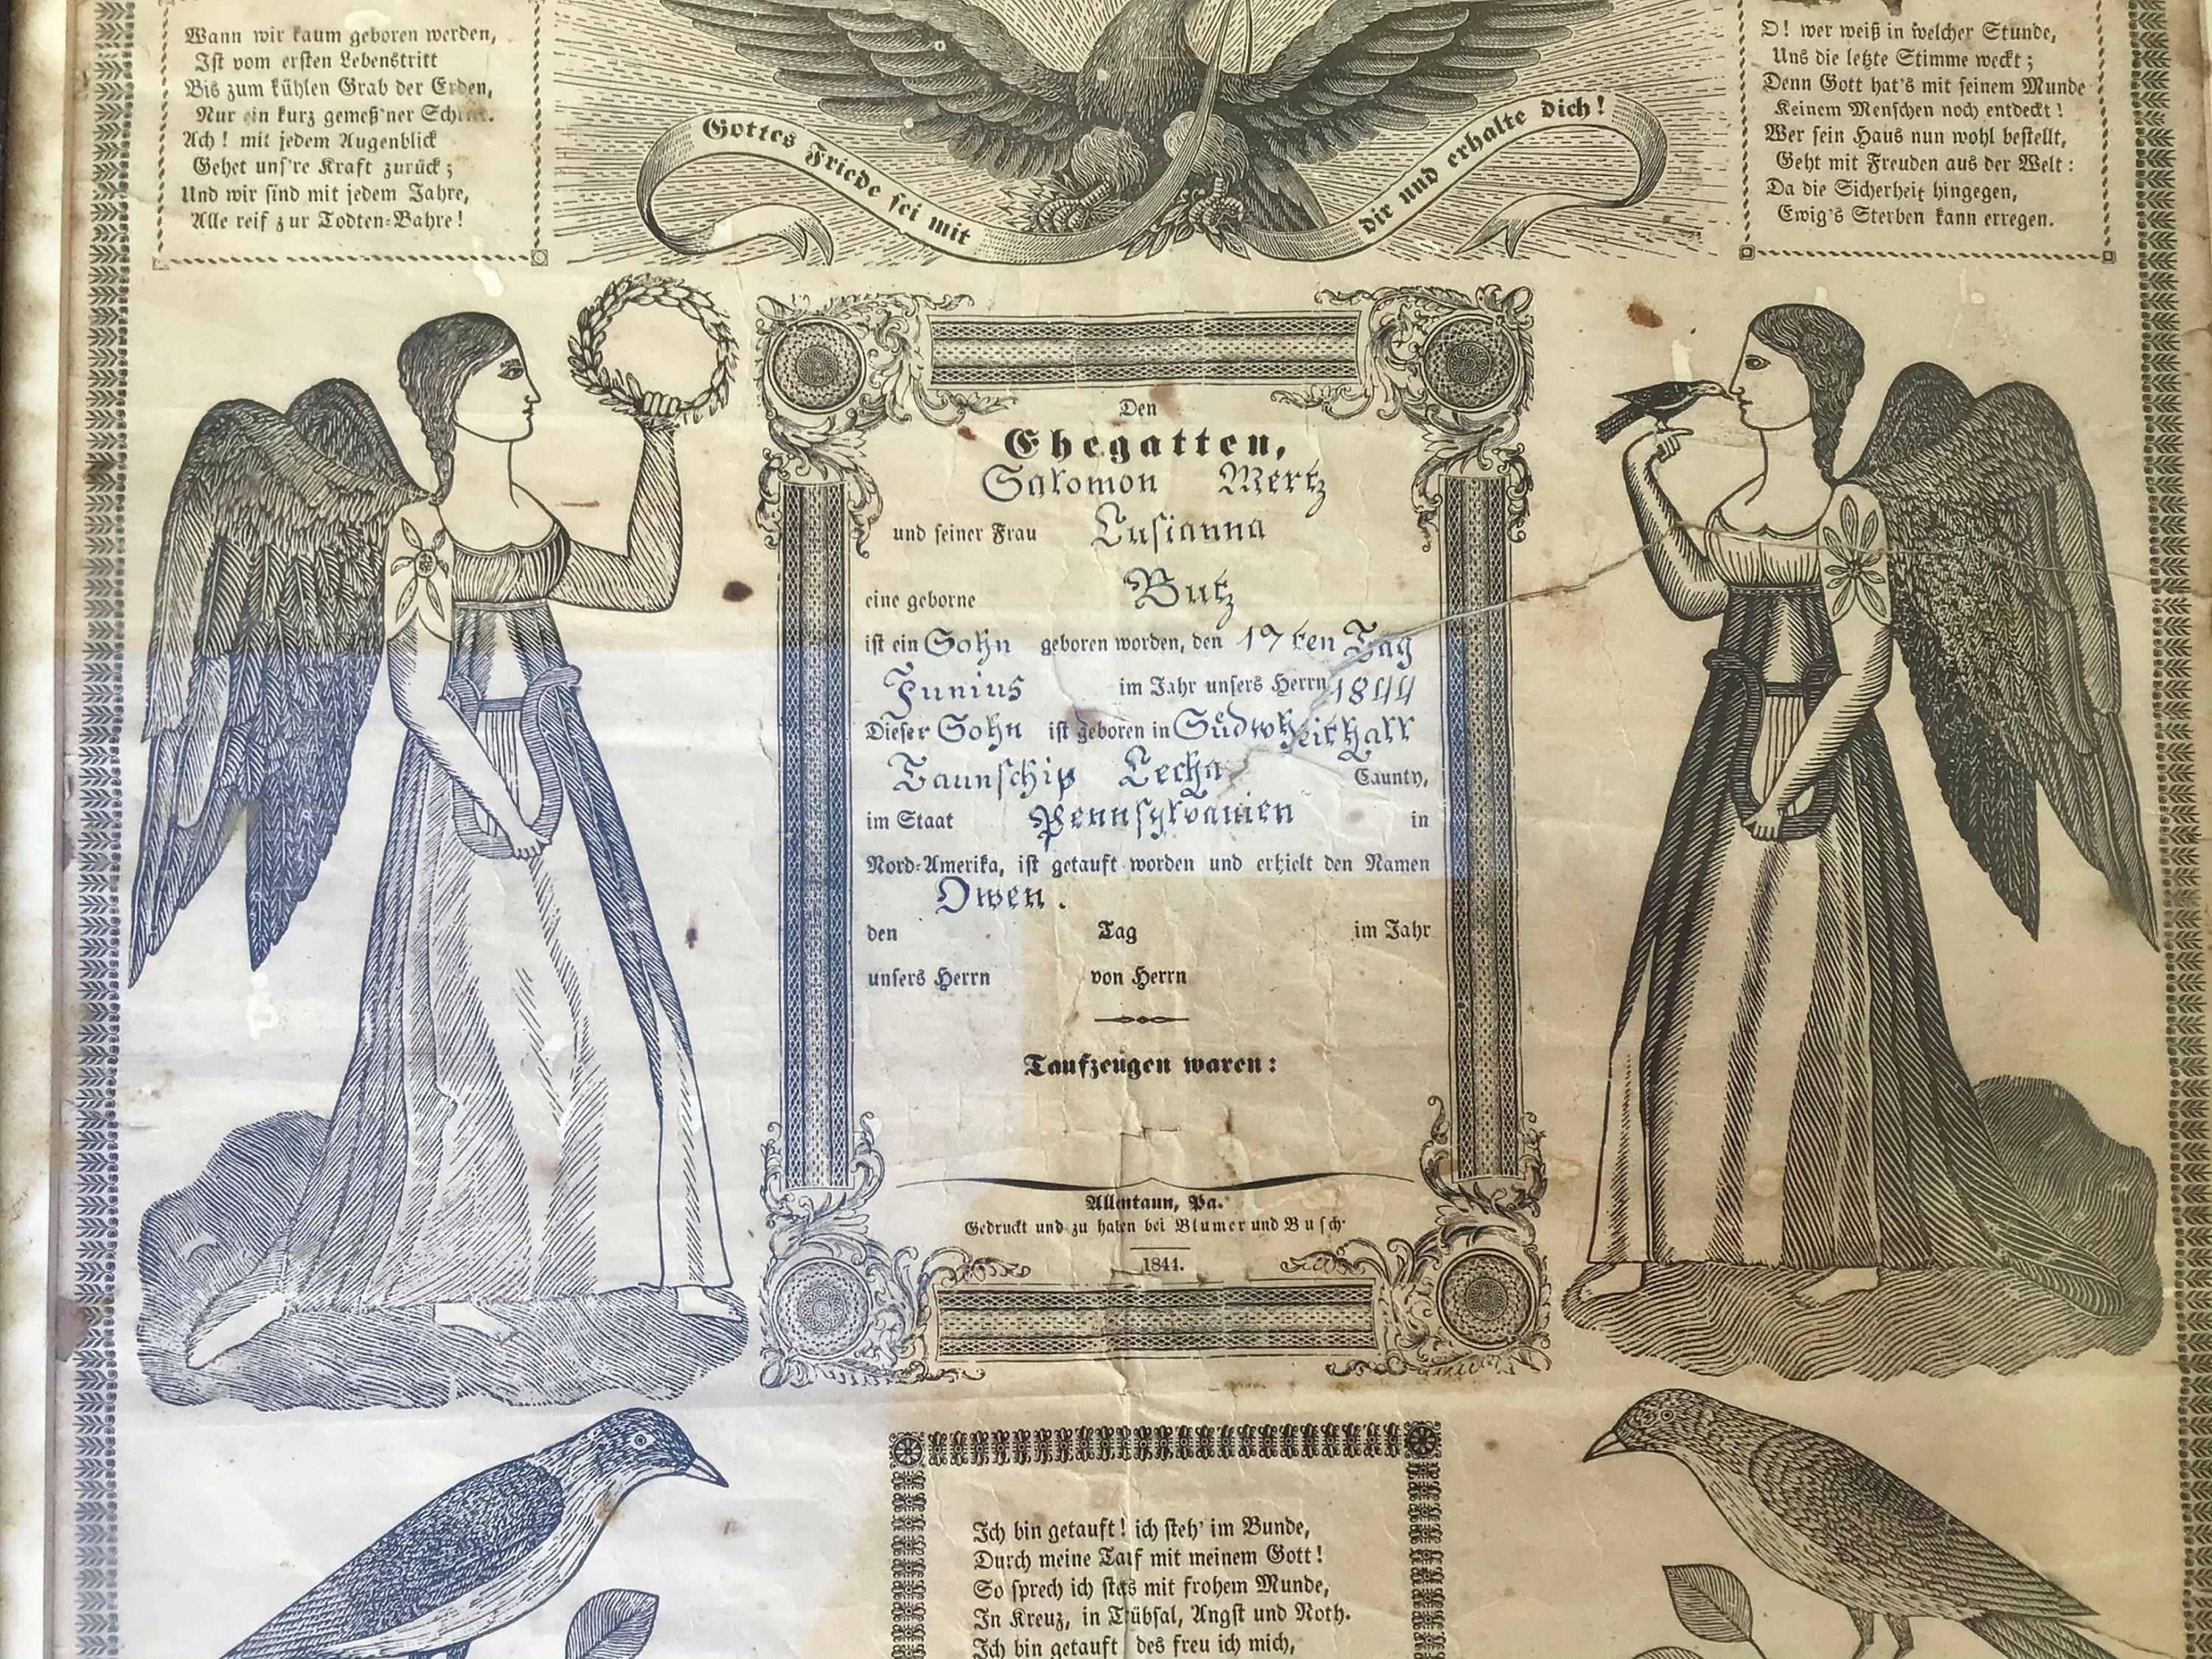 Wann wir kaum geboren werden,
Ist vom ersten Lebenstritt
Bis zum kühlen Grab der Erden,
Nur ein kurz gemeß'ner Schritt.
Ach! mit jedem Augenblick
Gehet uns're Kraft zurück;
Und wir sind mit jedem Jahre,
Alle reif zur Todten-Bahre!
Gottes Friede sei mit dir und erhalte dich!
O! wer weiß in welcher Stunde,
Uns die letzte Stimme weckt;
Denn Gott hat's mit seinem Munde
Keinem Menschen noch entdeckt!
Wer sein Haus nun wohl bestellt,
Geht mit Freuden aus der Welt:
Da die Sicherheit hingegen,
Ewig's Sterben kann erregen.
Den
Ehegatten,
Salomon Mertz
und seiner Frau Lusianna
eine geborne Butz
ist ein Sohn geboren worden, den 19ten Tag
Junius im Jahr unsers Herrn 1844
Dieser Sohn ist geboren in Südwheithall
Taunschip Lecha Caunty,
im Staat Pennsylvanien in
Nord-Amerika, ist getauft worden und erhielt den Namen
Owen.
den Tag im Jahr
unsers Herrn von Herrn
Taufzeugen waren:
Allentaun, Pa.
Gedruckt und zu haben bei Blumer und Busch
1844.
Ich bin getauft! ich steh' im Bunde,
Durch meine Tauf mit meinem Gott!
So sprech ich stets mit frohem Munde,
In Kreuz, in Trübsal, Angst und Noth.
Ich bin getauft des freu ich mich,